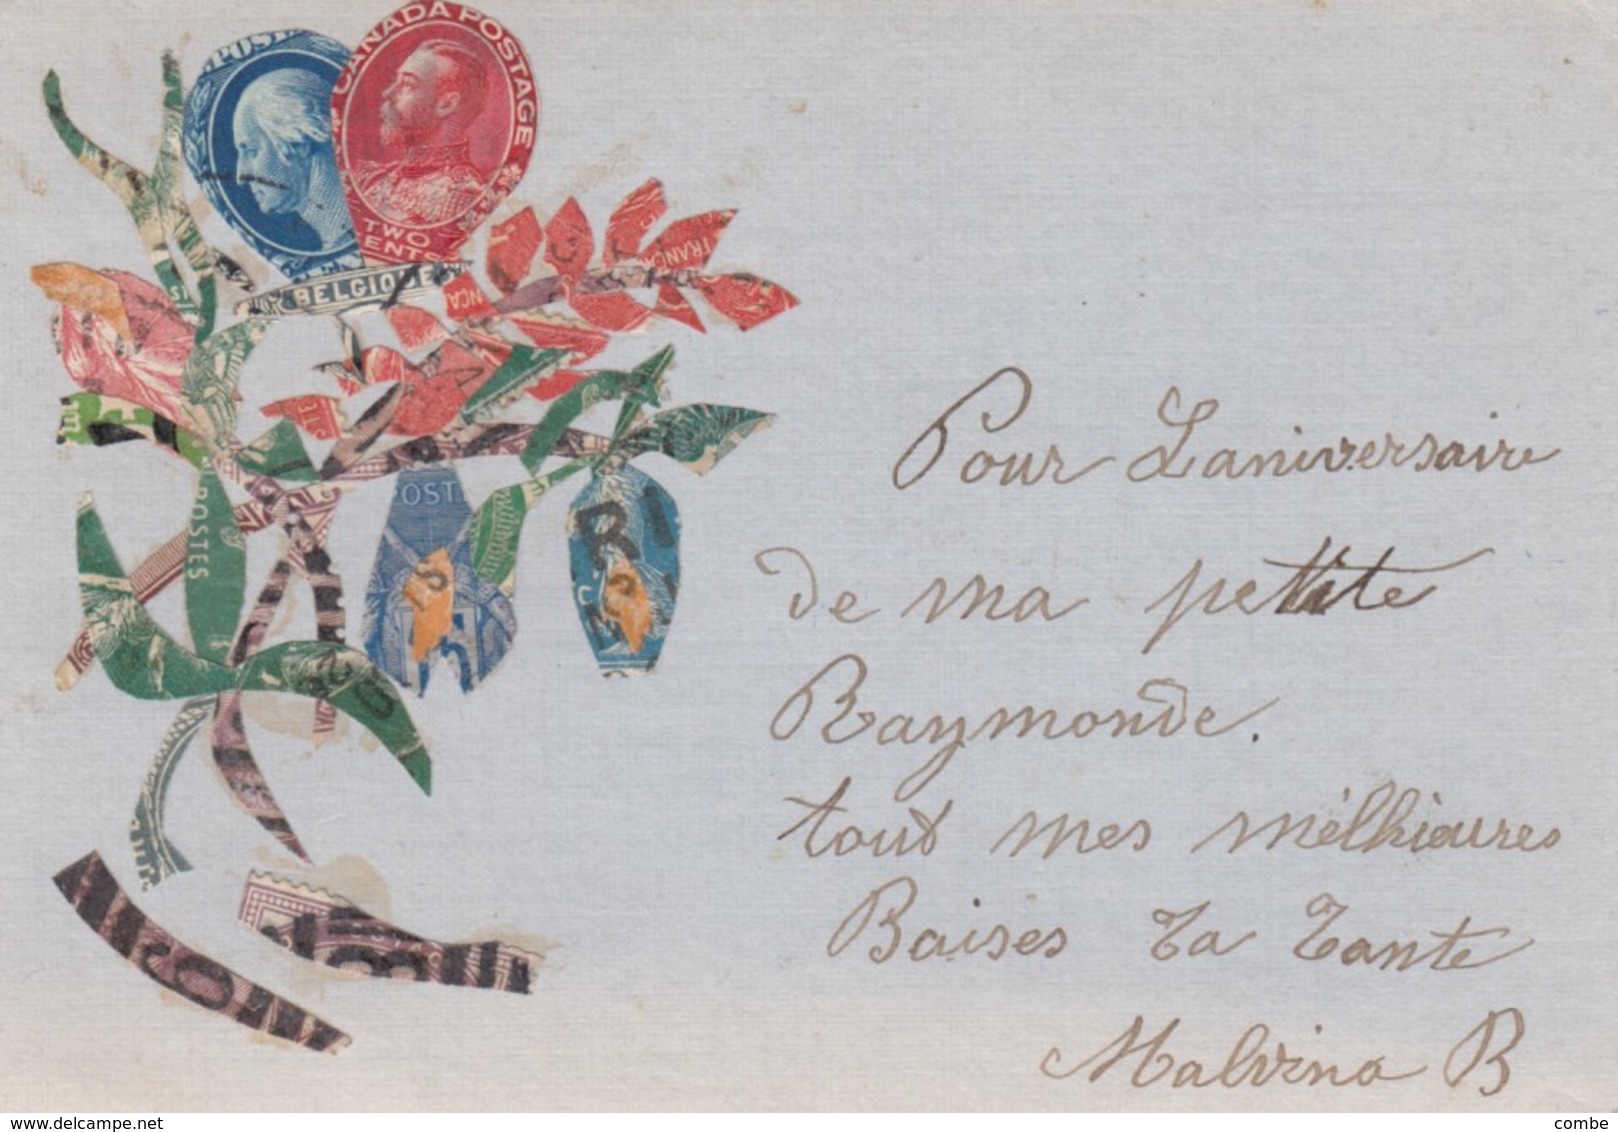 CANADA POSTAGE
TWO
CENTS
POST
BELGIQUE
FRANCA
POSTES
POST
RI
Pour Laniversaire
de ma petite
Raymonde.
tout mes mélhieures
Baises Ta Tante
Malvina B
www.delcampe.net
combe